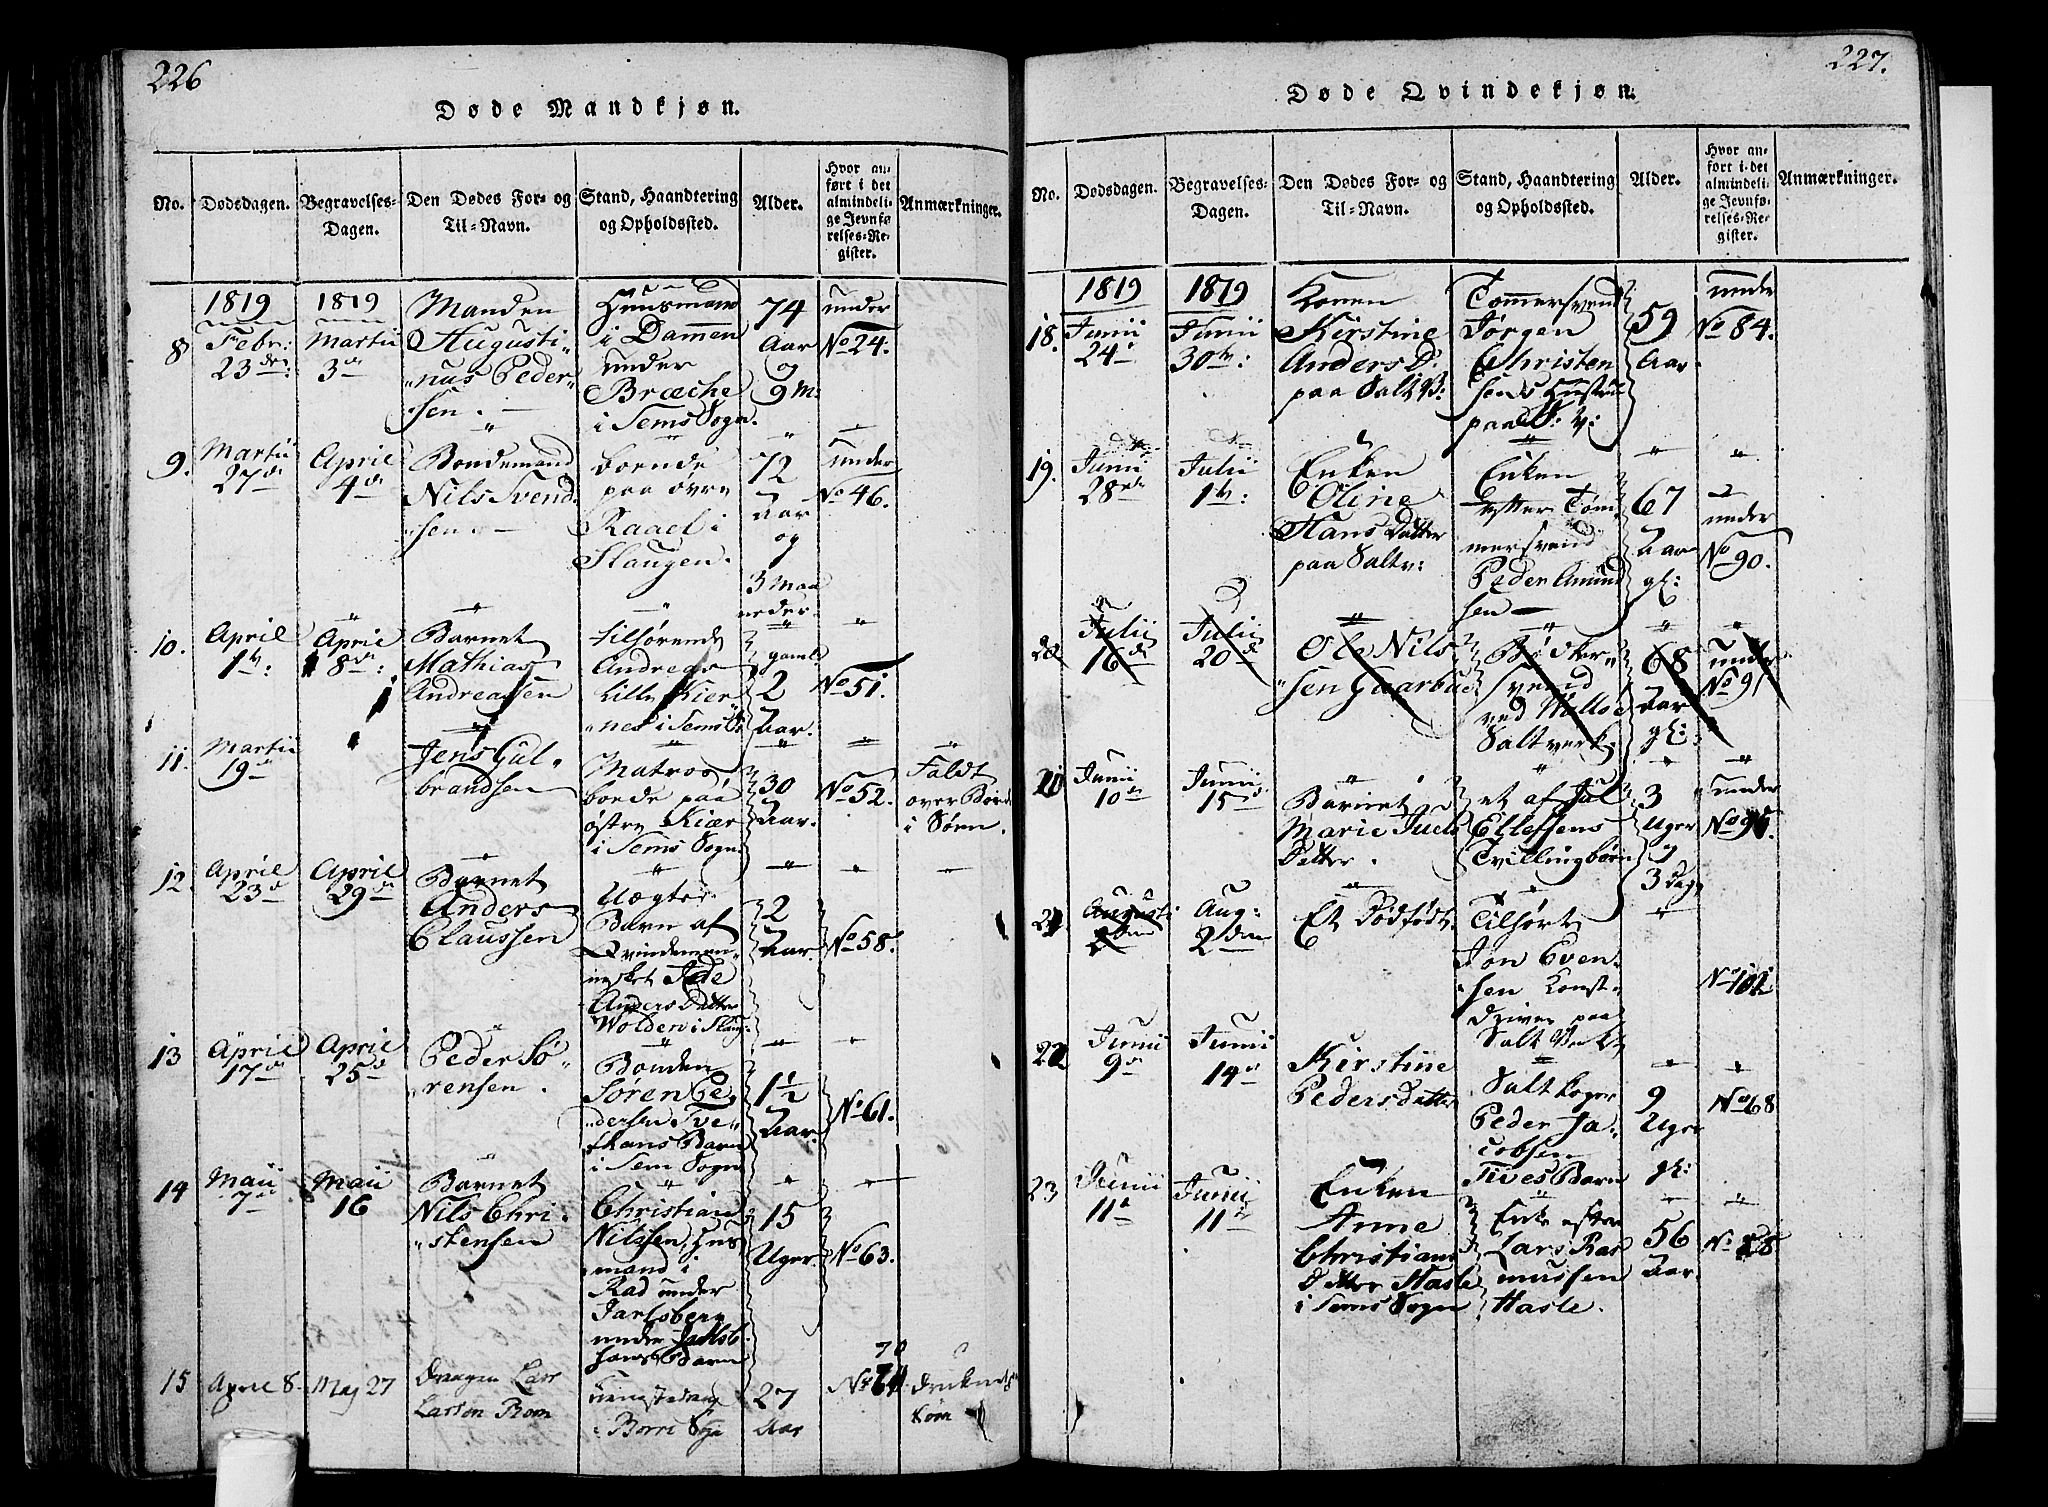 226
Døde Mandkjøn.
No.
Dødsdagen.
Begravelses-
Dagen.
Den Dødes For- og
Til-Navn.
Stand, Haandtering
og Opholdssted.
Alder.
Hvor an-
ført i det
almindeli-
ge Jevnfø-
relses-Re-
gister.
Anmærkninger.
8
1819
Febr:
23de:
1819
Martii
3die
Manden
Augusti-
nus Peder-
sen.
Huusmand
i Dammen
under
Bræche
i Sems Sogn.
74
Aar
og
9 M:
under
No 24.
9.
Martii
27de
April
4de
Bondemand
Nils Svend-
sen.
boende
paa øvre
Raael i
Slaugen.
72
Aar
og
3 Maa
neder.
under
No 46.
10.
April
1te:
April
8de:
Barnet
Mathias
Andreassen
tilhørende
Andreas
Lille Kier-
nes i Sems S
gaml
2
Aar.
No 51.
11.
Martii
19de
Jens Gul-
brandsen
Matros
boede paa
østre Kiær
i Sems Sogn
30
Aar.
No 52.
Faldt
over Bord
i Søen.
12.
April
23de
April
29de
Barnet
Anders
Claussen
Uægte
Barn af
Qvindemen-
nesket Ide
Anders Datter
Wolden i Slaug:
2
Aar
No 58.
13
April
17de
April
25de
Peder Sø-
rensen.
Bonden
Søren Pe-
dersen Tve-
Barn
i Sem Sogn
1½
Aar
No 61.
14
Maii
7de
Maii
16
Barnet
Nils Chri-
stensen
Christian
Nilssen, Hus
mand i
Rad under
Jarlsberg
under
Barn
15
Uger.
No 63.
15
April 8.
Maj 27
Drengen Lars
Larson Rom
i Borre Sogn
27
Aar
70
No
Druknet
Søen
227.
Døde Qvindekjøn.
No.
Dødsdagen.
Begravelses-
Dagen.
Den Dødes For- og
Til-Navn.
Stand, Haandtering
og Opholdssted.
Alder.
Hvor an-
ført i det
almindeli-
ge Jevnfø-
relses-Re-
gister.
Anmærkninger.
18.
1819
Junii
24de
1819
Junii
30te:
Konen
Kirstine
Anders D:
paa Salt V:
Tømmersvend
Jørgen
Christen
sens Hustru
paa S: V:
59
Aar
under
No 84.
19.
Junii
28de
Julii
1te:
Enken
Oline
Hans Datter
paa Saltv:
Enken
efter Tøm-
mersvend
Peder Amund
sen
67
Aar
gl:
under
No 90.
20
Julii
16de
Julii
20de
Ole Nils-
sen Gaarboe
Bødker-
svend
ved Walløe
Saltverk.
68
Aar
gl:
under
No 91
20
Junii
10de
Junii
15de
Barnet
Marie Juels
Datter.
et af Jul
Ellefsens
Tvillingbørn
3
Uger
og
3 Dage
under
No 95.
21
Augusti
2den
Aug:
2den
Et Dødfødt.
Tilhørt
Jon Even-
sen Konst-
driver paa
Salt Verket
No 101
22
Junii
9de
Junii
14de
Kirstine
Pedersdatter
Salt koger
Peder Ja-
cobsen
Tves Barn
9
Uger
gl:
No 68
23
Junii
11te
Junii
11te
Enken
Anne
Christians
Datter Hasle
i Sems Sogn
Enke efter
Lars Ras
mussen
Hasle.
56
Aar.
No